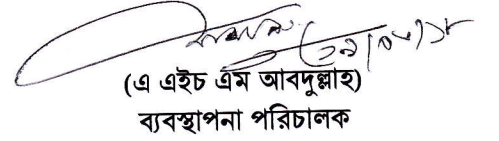 (এ এইচ এম আবদুল্লাহ)
ব্যবস্থাপনা পরিচালক